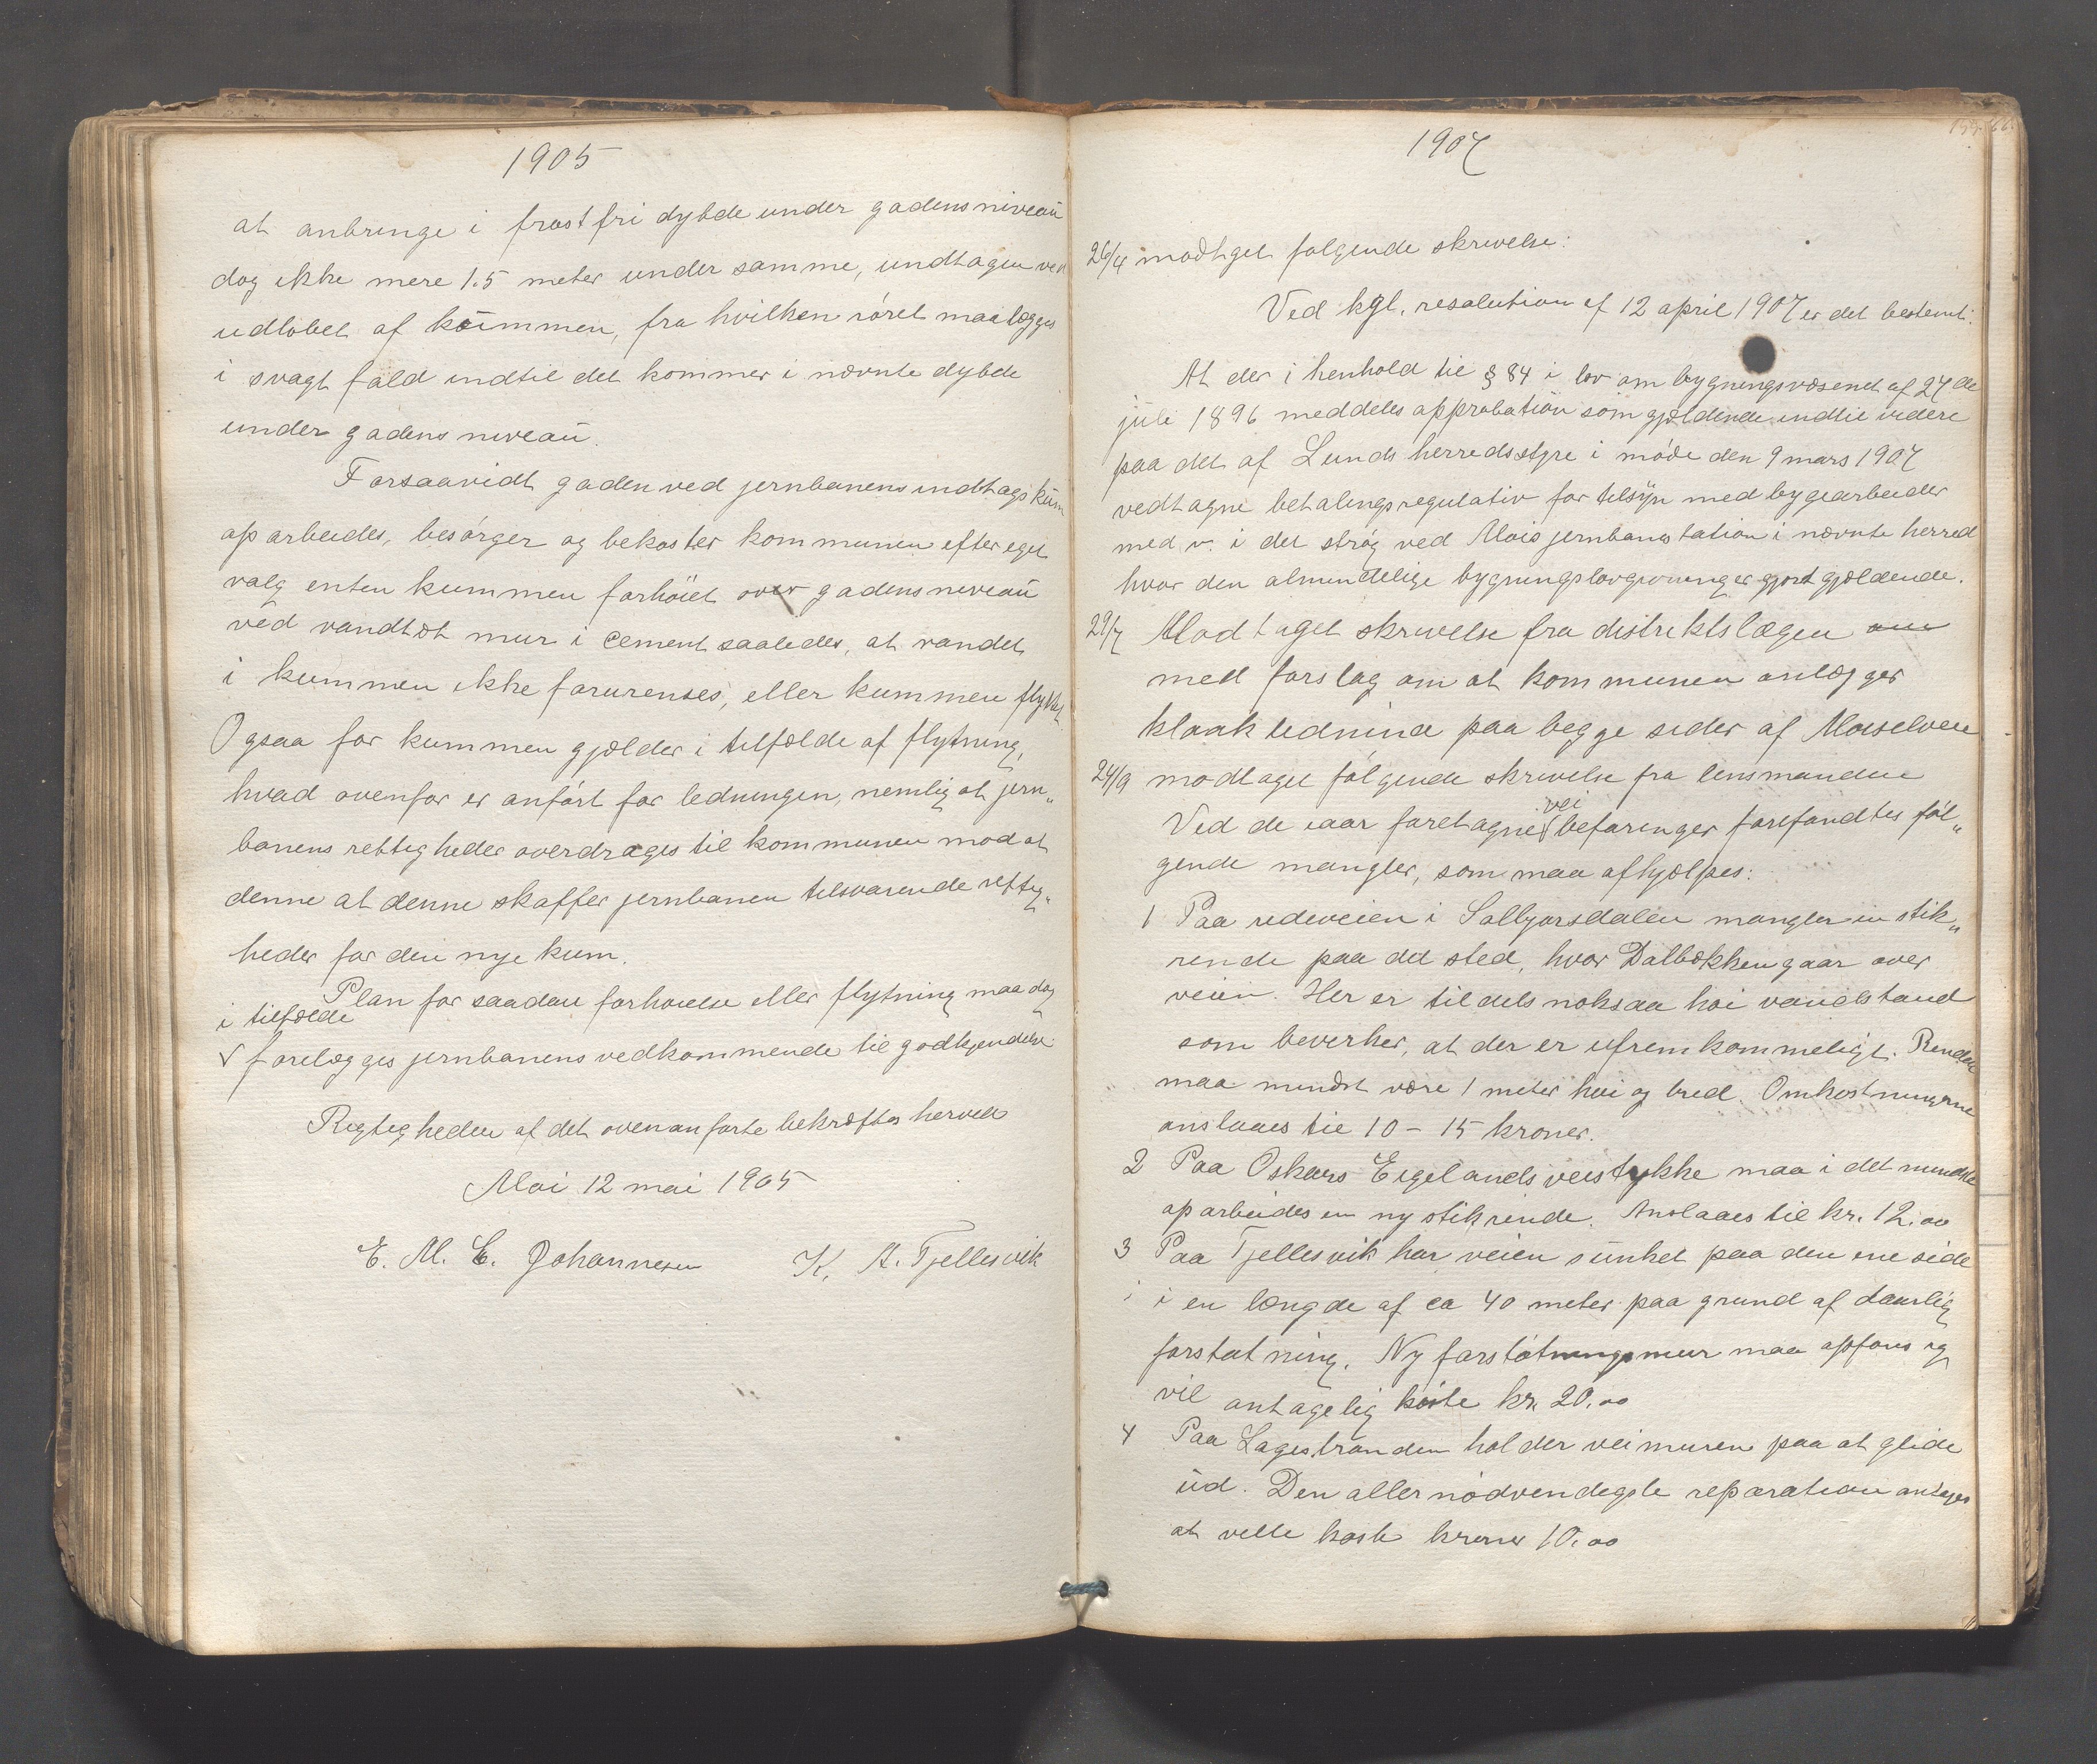 1905
at anbringe i frostfri dybde under gadens niveau
dog ikke mere 1.5 meter under samme, undtagen ved
udløbet af kummen, fra hvilken røret maa lægges
i svagt fald indtil det kommer i nævnte dybde
under gadens niveau.
Forsaavidt gaden ved jernbanens indtags kum
oparbeides, besørger og bekoster kommunen efter eget
valg enten kummen forhøiet over gadens niveau
ved vandtæt mur i cement saaledes, at vandet
i kummen ikke forurenses, eller kummen flyttet
Ogsaa for kummen gjælder i tilfælde af flytning,
hvad ovenfor er anført for ledningen, nemlig at jern„
banens rettigheder overdrages til kommunen mod at
denne at denne skaffer jernbanen tilsvarende rettig„
heder for den nye kum.
Plan for saadan forhøielse eller flytning maa dog
i tilfælde
√ forelægges jernbanens vedkommende til godkjendelse.
Rigtigheden af det ovenanførte bekræftes herved
Moi 12 mai 1905
E. M. E. Johannesen K. A. Tjellesvik
1907
26/4 modtaget følgende skrivelse:
Ved kgl. resolution af 12 april 1907 er det bestemt:
At der i henhold til § 84 i lov om bygningsvæsenet af 27de
juli 1896 meddeles approbation som gjældende indtil videre
paa det af Lunds herredsstyre i møde den 9 mars 1907
vedtagne betalingsregulativ for tilsyn med bygearbeider
med v. i det strøg ved Mois jernbanestation i nævnte herred
hvor den almindelige bygningslovgivning er gjort gjældende.
29/7 Modtaget skrivelse fra distriktslægen om
med forslag om at kommunen anlægger
kloakledning paa begge sider af Moiselven
24/9 modtaget følgende skrivelse fra lensmanden
vei
Ved de iaar foretagne √ befaringer forefandtes føl„
gende mangler, som maa afhjælpes:
1 Paa rideveien i Salbjorsdalen mangler en stik„
rende paa det sted, hvor Dalbækken gaar over
veien. Her er tildels noksaa høi vandstand
som bevirker, at der er ufremkommeligt. Renden
maa mindst være 1 meter høi og bred. Omkostningerne
anslaaes til 10 – 15 kroner.
2 Paa Oskars Eigelands veistykke maa i det mindste
oparbeides en ny stikrende. Anslaaes til kr. 12.00
3 Paa Tjellesvik har veien sunket paa den ene side
i en længde af ca 40 meter paa grund af daarlig
forstøtning. Ny forstøtningsmur maa opføres og
vil antagelig koste kr. 20.00
4 Paa Lagestranden holder veimuren paa at glide
ud. Den aller nødvendigste reparation antages
at ville koste kroner 10.00